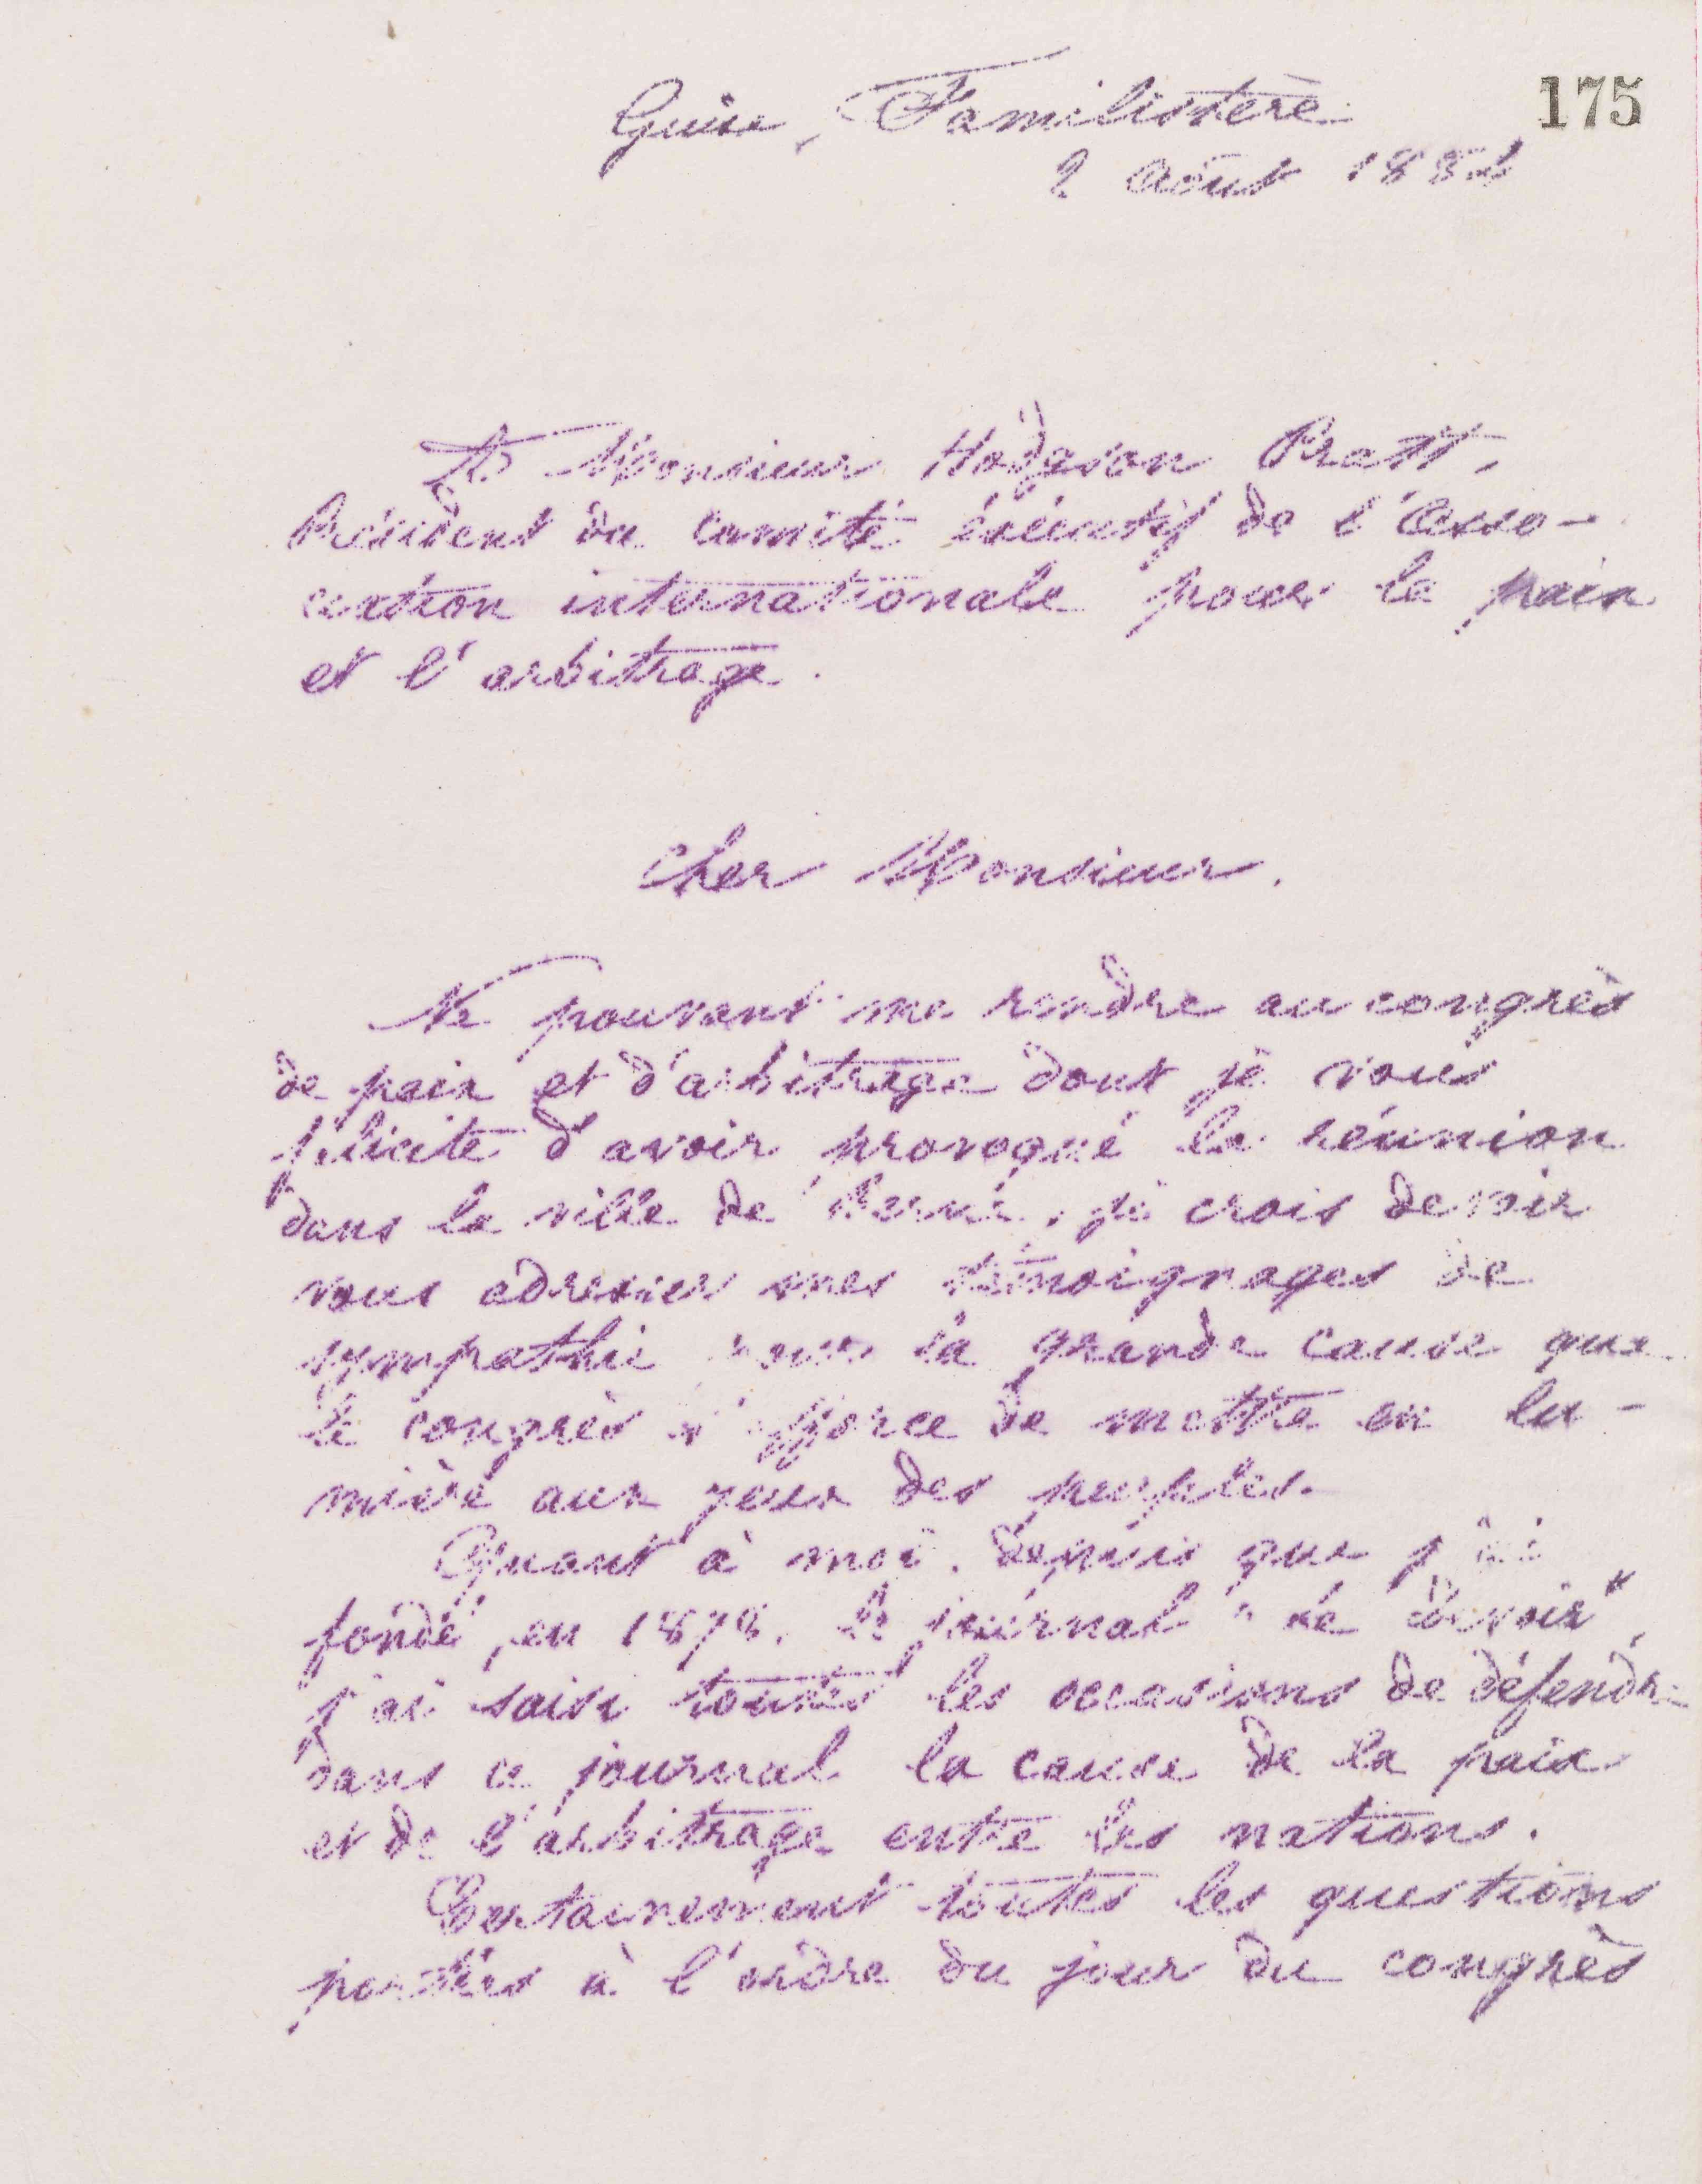 175
Guise, Familistère
2 Août 1884
A Monsieur Hodgson Pratt,
Président du comité éxécutif de l'Asso-
ciation internationale pour la paix
et l'arbitrage.
Cher Monsieur,
Ne pouvant me rendre au congrès
de paix et d'arbitrage dont je vous
félicite d'avoir provoqué la réunion
dans la ville de Berne, je crois devoir
vous adresser mes témoignages de
sympathie pour la grande cause que
le congrès s'efforce de mettre en lu-
mière aux yeux des peuples.
Quant à moi, depuis que j'ai
fondé, en 1878, le journal "Le Devoir",
j'ai saisi toutes les occasions de défendre
dans ce journal la cause de la paix
et de l'arbitrage entre les nations.
Certainement toutes les questions
portées à l'ordre du jour du congrès